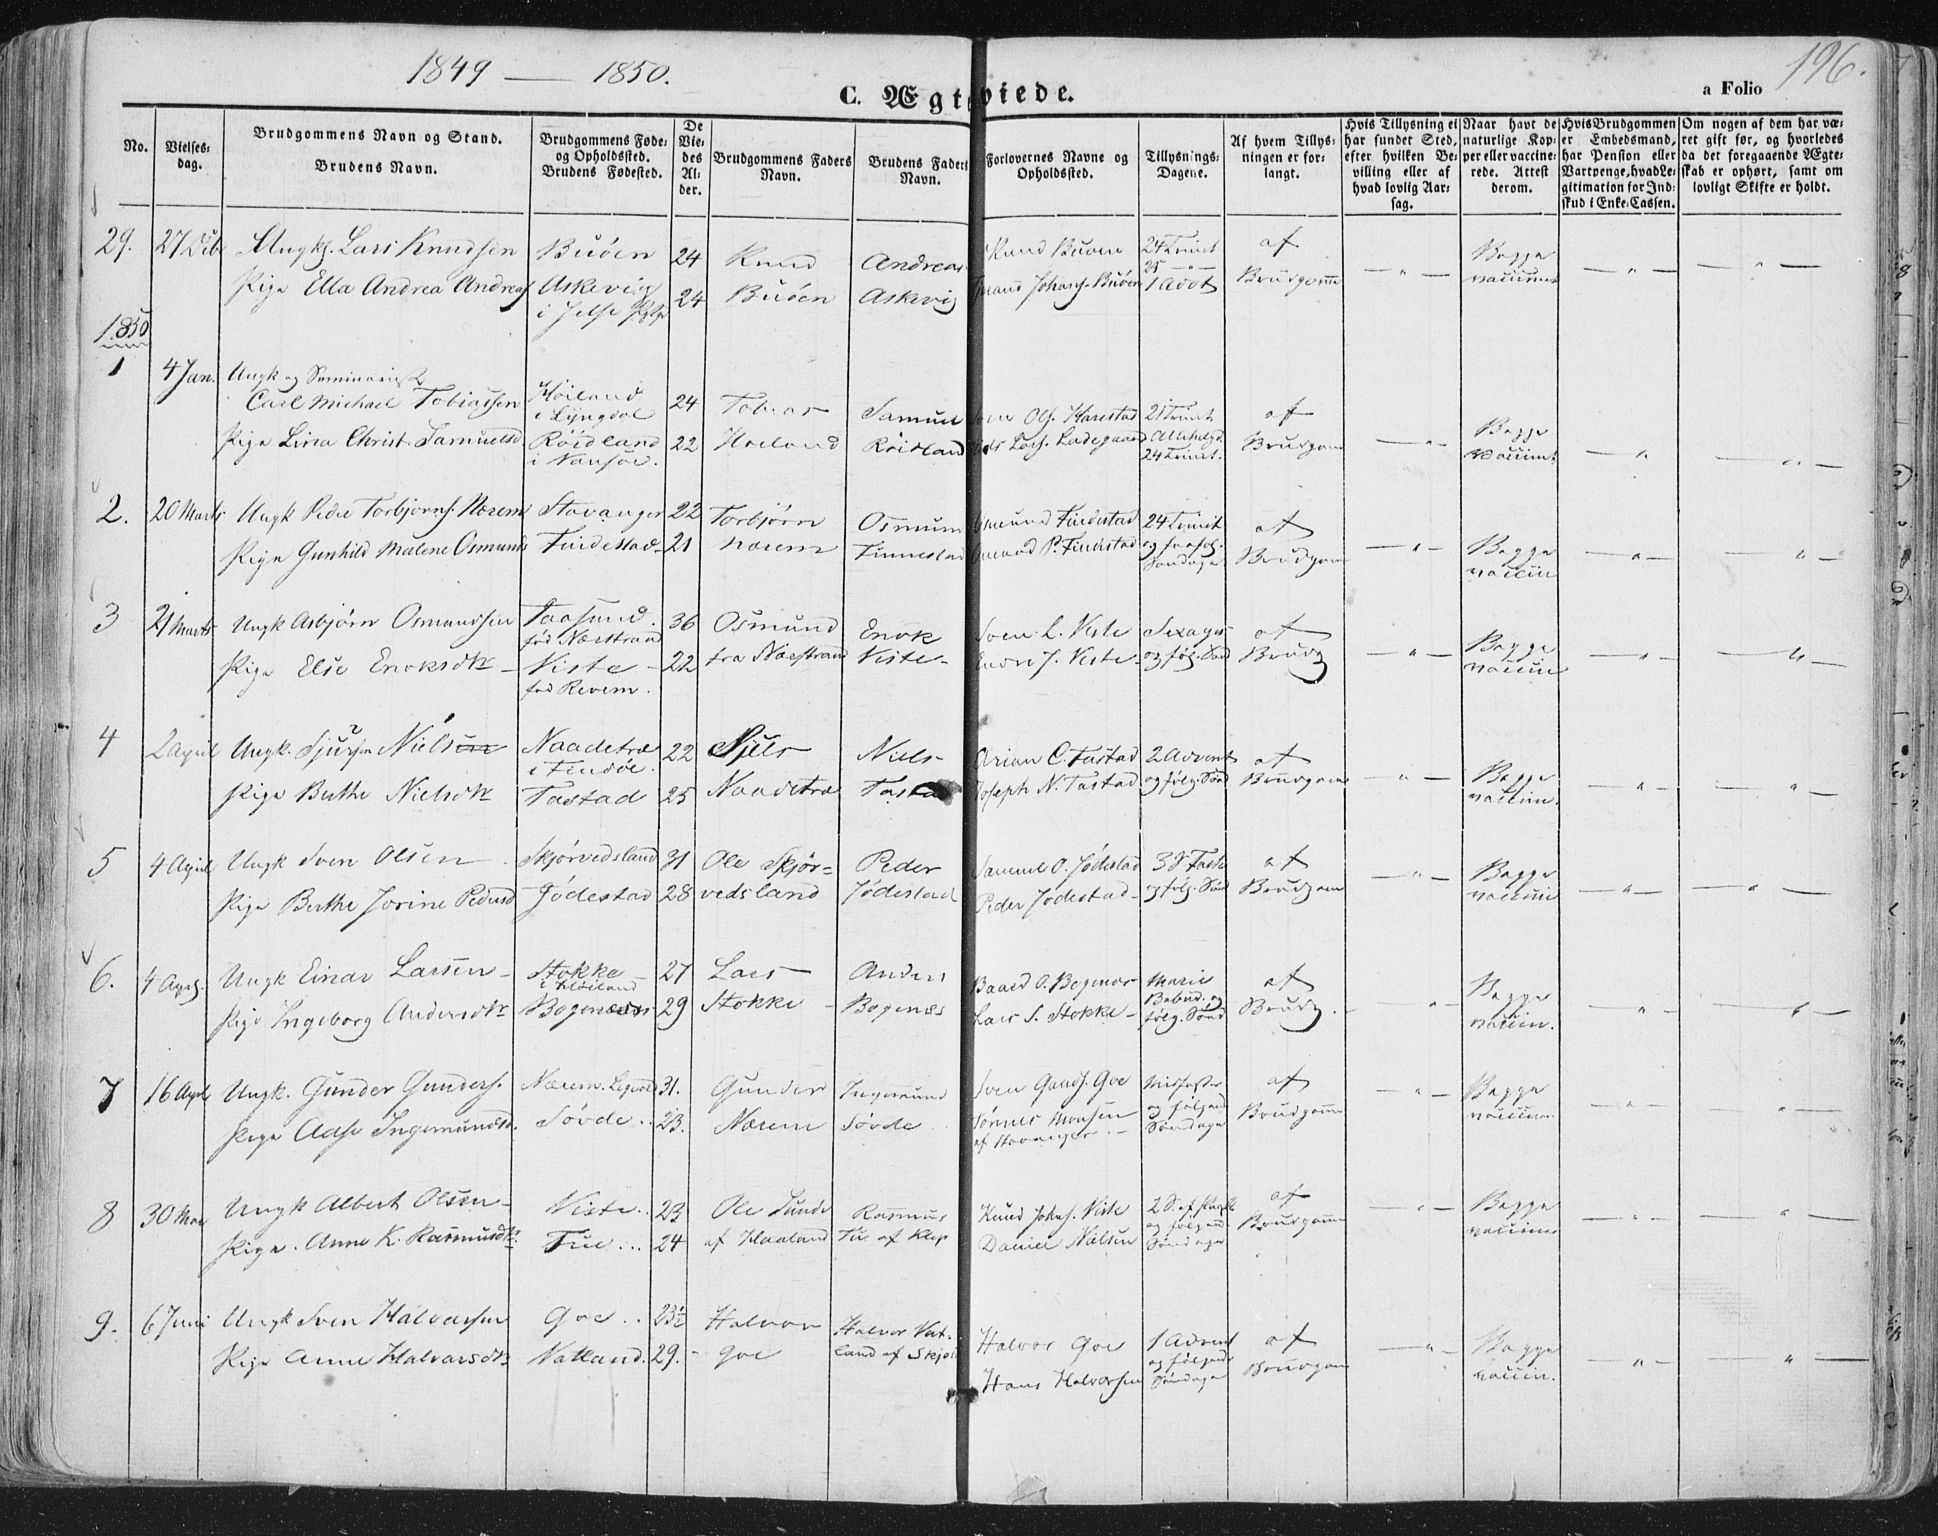 1849 — 1850.
196.
C. Ægteviede.
a Folio
No.
Vielses-dag.
Brudgommens Navn og Stand.
Brudens Navn.
Brudgommens Føde- og Opholdssted.
Brudens Fødested.
De Viedes Alder.
Brudgommens Faders Navn.
Brudens Faders Navn.
Forlovernes Navne og Opholdssted.
Tillysnings-Dagene.
Af hvem Tillysningen er forlangt.
Hvis Tillysning ei har fundet Sted, efter hvilken Bevilling eller af hvad lovlig Aarsag.
Naar havt de naturlige Kopper eller vaccinerede. Attest derom.
Hvis Brudgommen er Embedsmand, har Pension eller Vartpenge, hvad Legitimation for Indskud i Enke-Cassen.
Om nogen af dem har været gift før, og hvorledes da det foregaaende Ægteskab er ophørt, samt om lovligt Skifte er holdt.
29. 27 Dcb Ungk. Lars Knudsen Buøen 24 Knud Andreas Knud Buøen 24 Trinit af Begge
Pige Ella Andrea Andreas Askevig 24 Buøen Askevig Johans. Buøen 25 — " — 1 Advt Brudgomm — " — vaccineret — " — — " —
i Jelse
1850
1 4 Jan. Ungk og Seminarist
Carl Michael Tobiassen Høiland 24 Tobias Samuel Sven Ols. Harestad 21 Trinit af Begge
i Lyngdal
Pige Lina Christ. Samuelsd Röidland 22 Høiland Röidland Ladegaard Allehelgd Brudgom — " — vaccin. — " — — " —
i Nansöe. 24 Trinit.
2. 20 Marts Ungk Peder Torbjørns. Nærem Stavanger 22 Torbjørn Osmund Findestad 24 Trinit af Begge
Pige Gunhild Malene Osmunds Findestad 21 Nærem Finnestad P. Findestad og paafølg. Søndage Brudgom — " — vaccin — " — — " —
3 21 Marts Ungk Asbjørn Osmundsen Faasund. 36 Osmund Enok Sven L. Viste Sexages af Begge
fød Nærstrand
Pige Else Enoksdtr — Viste — 22 fra Nærstrand Viste — Endre J. Viste — og følg. Sønd Brudg — " — vaccin — " — — " —
fød Revem.
4 2 April Ungk. Sjur Nielsen Naadetræ 22 Njels Niels Arian C. Tastad 2 Advent af Begge
i Findöe.
Pige Berthe Nielsdtr Tastad 25 Naadetræ Tastad Joseph N. Tastad og følg. Sønd Brudgom — " — vaccin. — " — — " —
5 4 April Ungk Sven Olsen Skjørvedsland 31 Ole Skjør= Peder Samuel O. Jødestad 3 S Faste af Begge
Pige Berthe Jorine Pedersd Jödestad 28 vedsland Jödestad Peder Jødestad — og følg. Sønd Brudgom — " — vaccin — " — — " —
6. 4 Apr. Ungk Einar Larsen — Stokke — 27 Lars — Anders Baard O. Bogenæs Marie af Begge
i Høiland
Pige Ingeborg Andersdtr Bogenæs 29 Stokke — Bogenæs Lars S. Stokke — Bebud. og følg. Sønd Brudg. — " — vaccin. — " — — " —
7 16 April Ungk. Gunder Gunders. Nærem. 31. Gunder Ingemund Sven Gunds. Goe Midfaste af Begge
Pige Aase Ingemundsd. Søvde.. 23. Nærem Søvde Tønnes Monsen og følgend Søndage Brudgomm — " — vaccin — " — — " —
af Stavanger. —
8 30 Mai Ungk Albert Olsen — Viste.. 23 Ole Lunde Rasmus Knud Johs. Viste 2 S. af Paaske af Begge
Pige. Anne K. Rasmusdtr Tue... 24 af Haaland Tu af Klep Daniel Nielsen og følgend Søndage Brudgomm — " — vaccineret — " — — " —
9. 6 Juni Ungk Sven Halvorsen Goe.. 23½ Halvor Halvor Nat- Halvor Goe 1 Advent af Begge
Pige Anne Halvorsdtr Natland. 29. — Goe land af Skjold Hans Halvorsen og følgende Søndage Brudgom — " — vaccin. — " — — " —